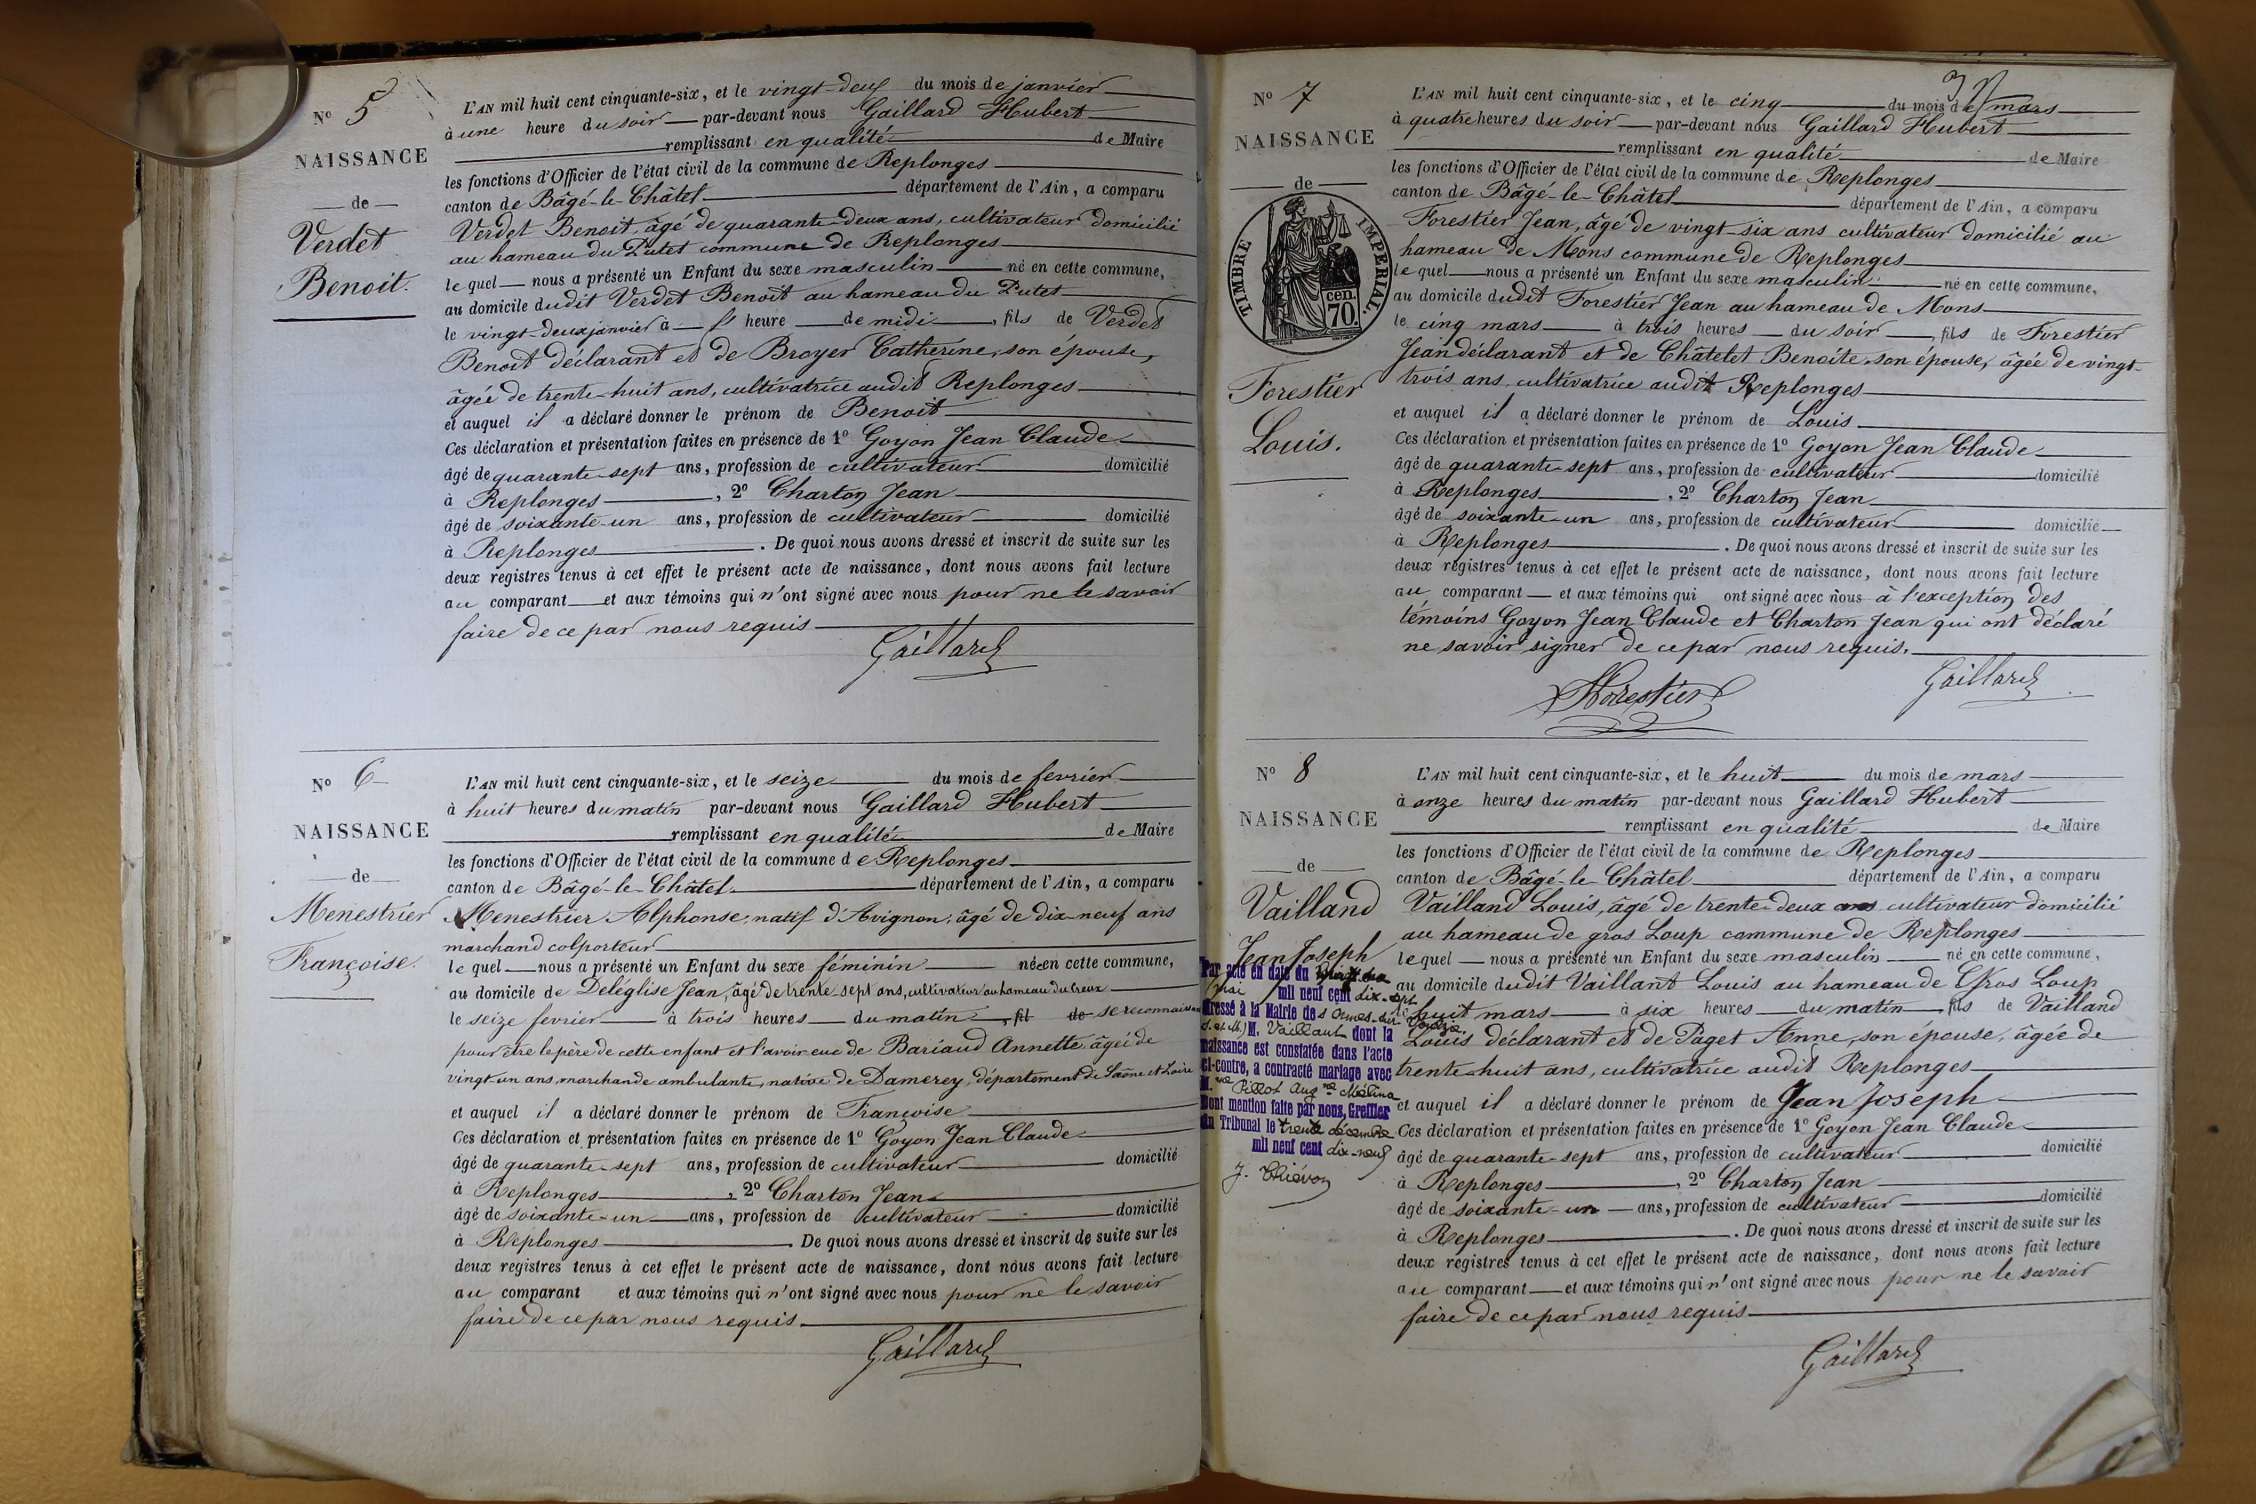 N° 5
NAISSANCE
de
Verdet
Benoit.
L'AN mil huit cent cinquante-six, et le vingt-deux du mois de janvier
à une heure du soir par-devant nous Gaillard Hubert
remplissant en qualité de Maire
les fonctions d'Officier de l'état civil de la commune de Replonges
canton de Bâgé-le-Châtel département de l'Ain, a comparu
Verdet Benoit, âgé de quarante-deux ans, cultivateur domicilié
au hameau du Putet commune de Replonges
le quel nous a présenté un Enfant du sexe masculin né en cette commune,
au domicile dudit Verdet Benoit au hameau du Putet
le vingt-deux janvier à heure de midi, fils de Verdet
Benoit déclarant et de Broyer Catherine, son épouse,
âgée de trente-huit ans, cultivatrice audit Replonges
et auquel il a déclaré donner le prénom de Benoit
Ces déclaration et présentation faites en présence de 1° Goyon Jean Claude
âgé de quarante-sept ans, profession de cultivateur domicilié
à Replonges, 2° Charton Jean
âgé de soixante-un ans, profession de cultivateur domicilié
à Replonges. De quoi nous avons dressé et inscrit de suite sur les
deux registres tenus à cet effet le présent acte de naissance, dont nous avons fait lecture
au comparant et aux témoins qui n'ont signé avec nous pour ne le savoir
faire de ce par nous requis
Gaillard
N° 6
NAISSANCE
de
Menestrier
Françoise.
L'AN mil huit cent cinquante-six, et le seize du mois de fevrier
à huit heures du matin par-devant nous Gaillard Hubert
remplissant en qualité de Maire
les fonctions d'Officier de l'état civil de la commune de Replonges
canton de Bâgé-le-Châtel département de l'Ain, a comparu
Menestrier Alphonse, natif d'Avignon, âgé de dix-neuf ans
marchand colporteur
le quel nous a présenté un Enfant du sexe féminin née en cette commune,
au domicile de Deléglise Jean, âgé de trente-sept ans, cultivateur au hameau du Creux
le seize fevrier à trois heures du matin, fil de se reconnaissant
pour être le père de cette enfant et l'avoir eue de Bariaud Annette âgée de
vingt-un ans, marchande ambulante, native de Damerey, département de Saône et Loire
et auquel il a déclaré donner le prénom de Françoise
Ces déclaration et présentation faites en présence de 1° Goyon Jean Claude
âgé de quarante-sept ans, profession de cultivateur domicilié
à Replonges, 2° Charton Jean
âgé de soixante-un ans, profession de cultivateur domicilié
à Replonges. De quoi nous avons dressé et inscrit de suite sur les
deux registres tenus à cet effet le présent acte de naissance, dont nous avons fait lecture
au comparant et aux témoins qui n'ont signé avec nous pour ne le savoir
faire de ce par nous requis.
Gaillard
N° 7
NAISSANCE
de
TIMBRE IMPERIAL.
70 cen.
Forestier
Louis.
L'AN mil huit cent cinquante-six, et le cinq du mois de mars
à quatre heures du soir par-devant nous Gaillard Hubert
remplissant en qualité de Maire
les fonctions d'Officier de l'état civil de la commune de Replonges
canton de Bâgé-le-Châtel département de l'Ain, a comparu
Forestier Jean, âgé de vingt-six ans cultivateur domicilié au
hameau de Mons commune de Replonges
le quel nous a présenté un Enfant du sexe masculin né en cette commune,
au domicile dudit Forestier Jean au hameau de Mons
le cinq mars à trois heures du soir, fils de Forestier
Jean déclarant et de Châtelet Benoîte, son épouse, âgée de vingt-
trois ans, cultivatrice audit Replonges
et auquel il a déclaré donner le prénom de Louis
Ces déclaration et présentation faites en présence de 1° Goyon Jean Claude
âgé de quarante-sept ans, profession de cultivateur domicilié
à Replonges, 2° Charton Jean
âgé de soixante-un ans, profession de cultivateur domicilié
à Replonges. De quoi nous avons dressé et inscrit de suite sur les
deux registres tenus à cet effet le présent acte de naissance, dont nous avons fait lecture
au comparant et aux témoins qui ont signé avec nous à l'exception des
témoins Goyon Jean Claude et Charton Jean qui ont déclaré
ne savoir signer de ce par nous requis.
Forestier
Gaillard
N° 8
NAISSANCE
de
Vailland
Jean Joseph
Par acte en date du
mai mil neuf cent dix-sept
dressé à la Mairie des Ormes-sur-Voulzie.
(S. et M.) M. Vaillant dont la
naissance est constatée dans l'acte
ci-contre, a contracté mariage avec
Mélina
Dont mention faite par nous, Greffier
du Tribunal le trente décembre
mil neuf cent dix-neuf
L'AN mil huit cent cinquante-six, et le huit du mois de mars
à onze heures du matin par-devant nous Gaillard Hubert
remplissant en qualité de Maire
les fonctions d'Officier de l'état civil de la commune de Replonges
canton de Bâgé-le-Châtel département de l'Ain, a comparu
Vailland Louis, âgé de trente-deux ans cultivateur domicilié
au hameau de gros Loup commune de Replonges
le quel nous a présenté un Enfant du sexe masculin né en cette commune,
au domicile dudit Vaillant Louis au hameau de Gros Loup
le huit mars à six heures du matin fils de Vailland
Louis déclarant et de Paget Anne, son épouse, âgée de
trente-huit ans, cultivatrice audit Replonges
et auquel il a déclaré donner le prénom de Jean Joseph
Ces déclaration et présentation faites en présence de 1° Goyon Jean Claude
âgé de quarante-sept ans, profession de cultivateur domicilié
à Replonges, 2° Charton Jean
âgé de soixante-un ans, profession de cultivateur domicilié
à Replonges. De quoi nous avons dressé et inscrit de suite sur les
deux registres tenus à cet effet le présent acte de naissance, dont nous avons fait lecture
au comparant et aux témoins qui n'ont signé avec nous pour ne le savoir
faire de ce par nous requis
Gaillard